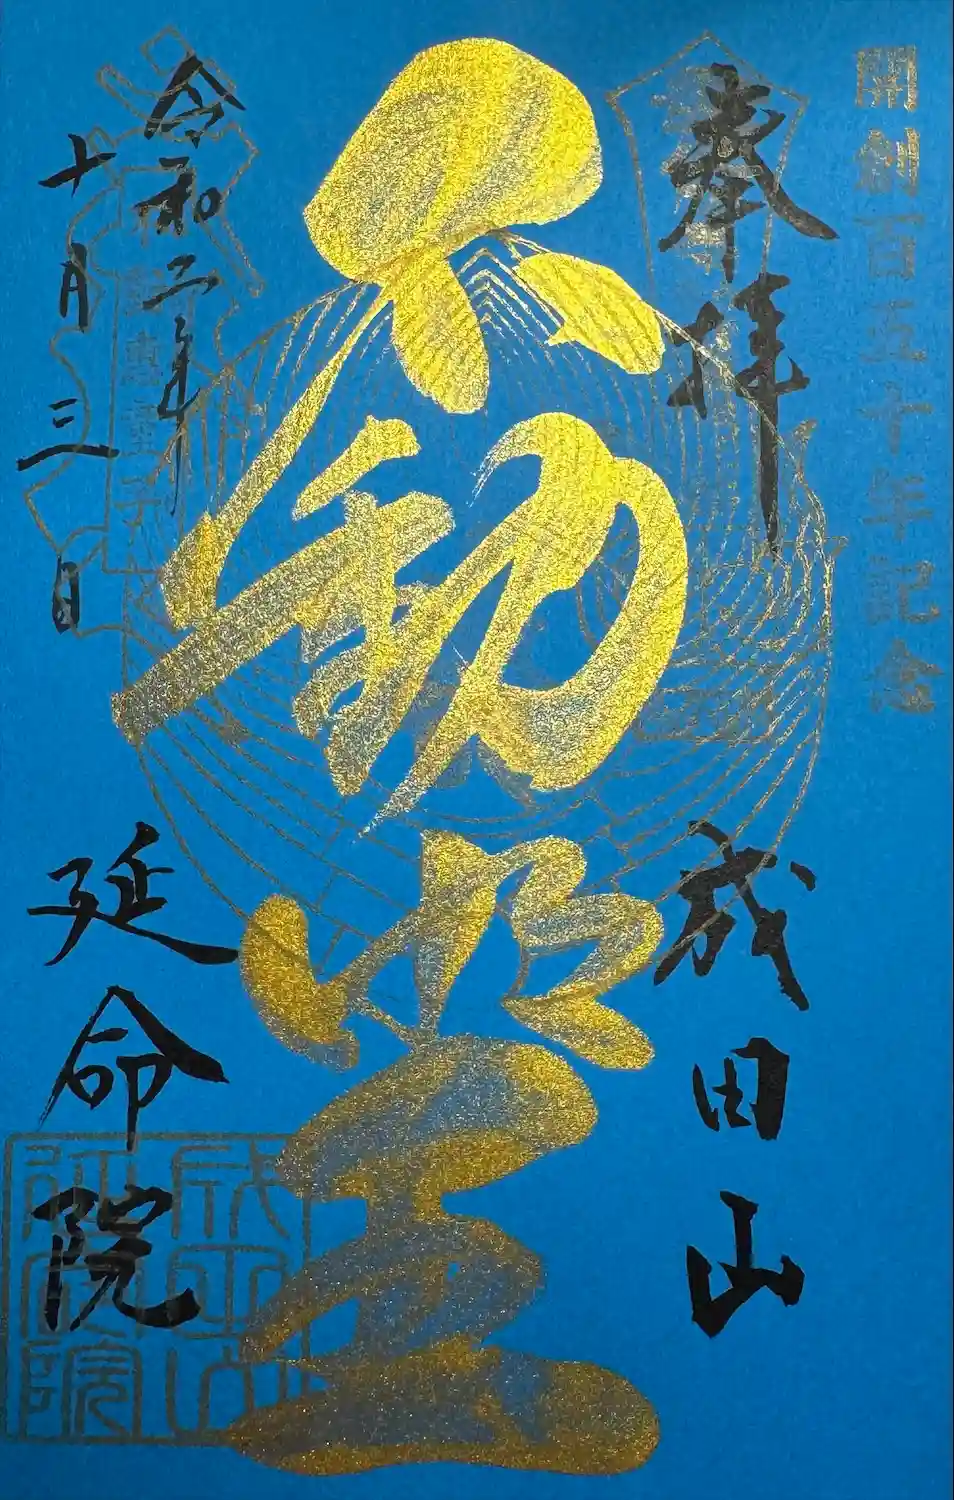 開創百五十年記念
奉拝
成田山
不動明王
令和二年
十月三日
延命院